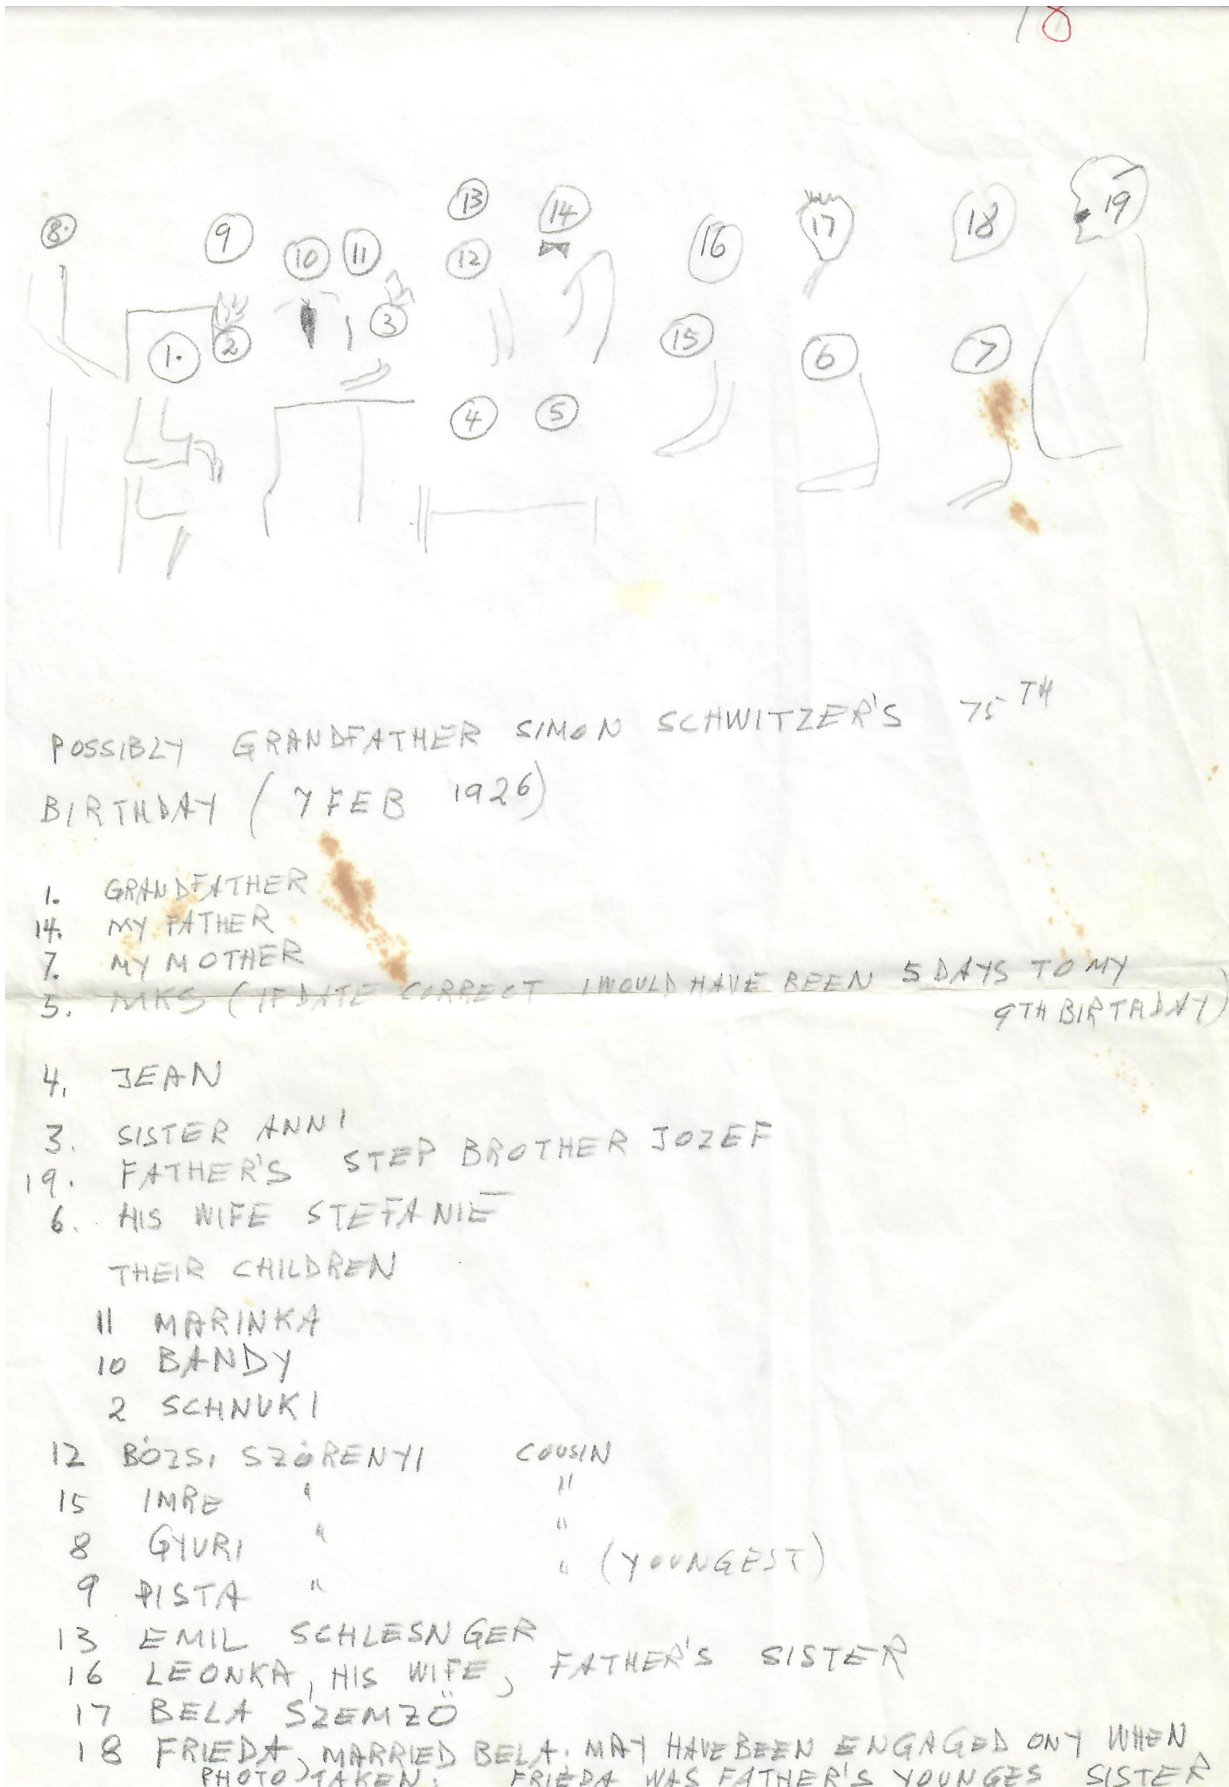 18
13
14
8.
9
17
18
19
10
11
12
16
3
15
1.
2
6
7
4
5
POSSIBLY GRANDFATHER SIMON SCHWITZER'S 75TH
BIRTHDAY (7 FEB 1926)
1. GRANDFATHER
14. MY FATHER
7. MY MOTHER
5. MKS (IF DATE CORRECT I WOULD HAVE BEEN 5 DAYS TO MY
9TH BIRTHDAY)
4. JEAN
3. SISTER ANNI
19. FATHER'S STEP BROTHER JOZEF
6. HIS WIFE STEFANIE
THEIR CHILDREN
11 MARINKA
10 BANDY
2 SCHNUKI
12 BÖZSI SZÖRENYI COUSIN
15 IMRE " "
8 GYURI " "
9 PISTA " " (YOUNGEST)
13 EMIL SCHLESNGER
16 LEONKA, HIS WIFE, FATHER'S SISTER
17 BELA SZEMZÖ
18 FRIEDA, MARRIED BELA. MAY HAVE BEEN ENGAGED ONY WHEN
PHOTO TAKEN. FRIEDA WAS FATHER'S YOUNGES SISTER